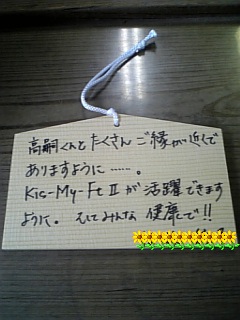 高嗣くんとたくさんご縁が近くで
ありますように……。
Kis-My-Ft Ⅱ が活躍できます
ように。そしてみんな健康で!!